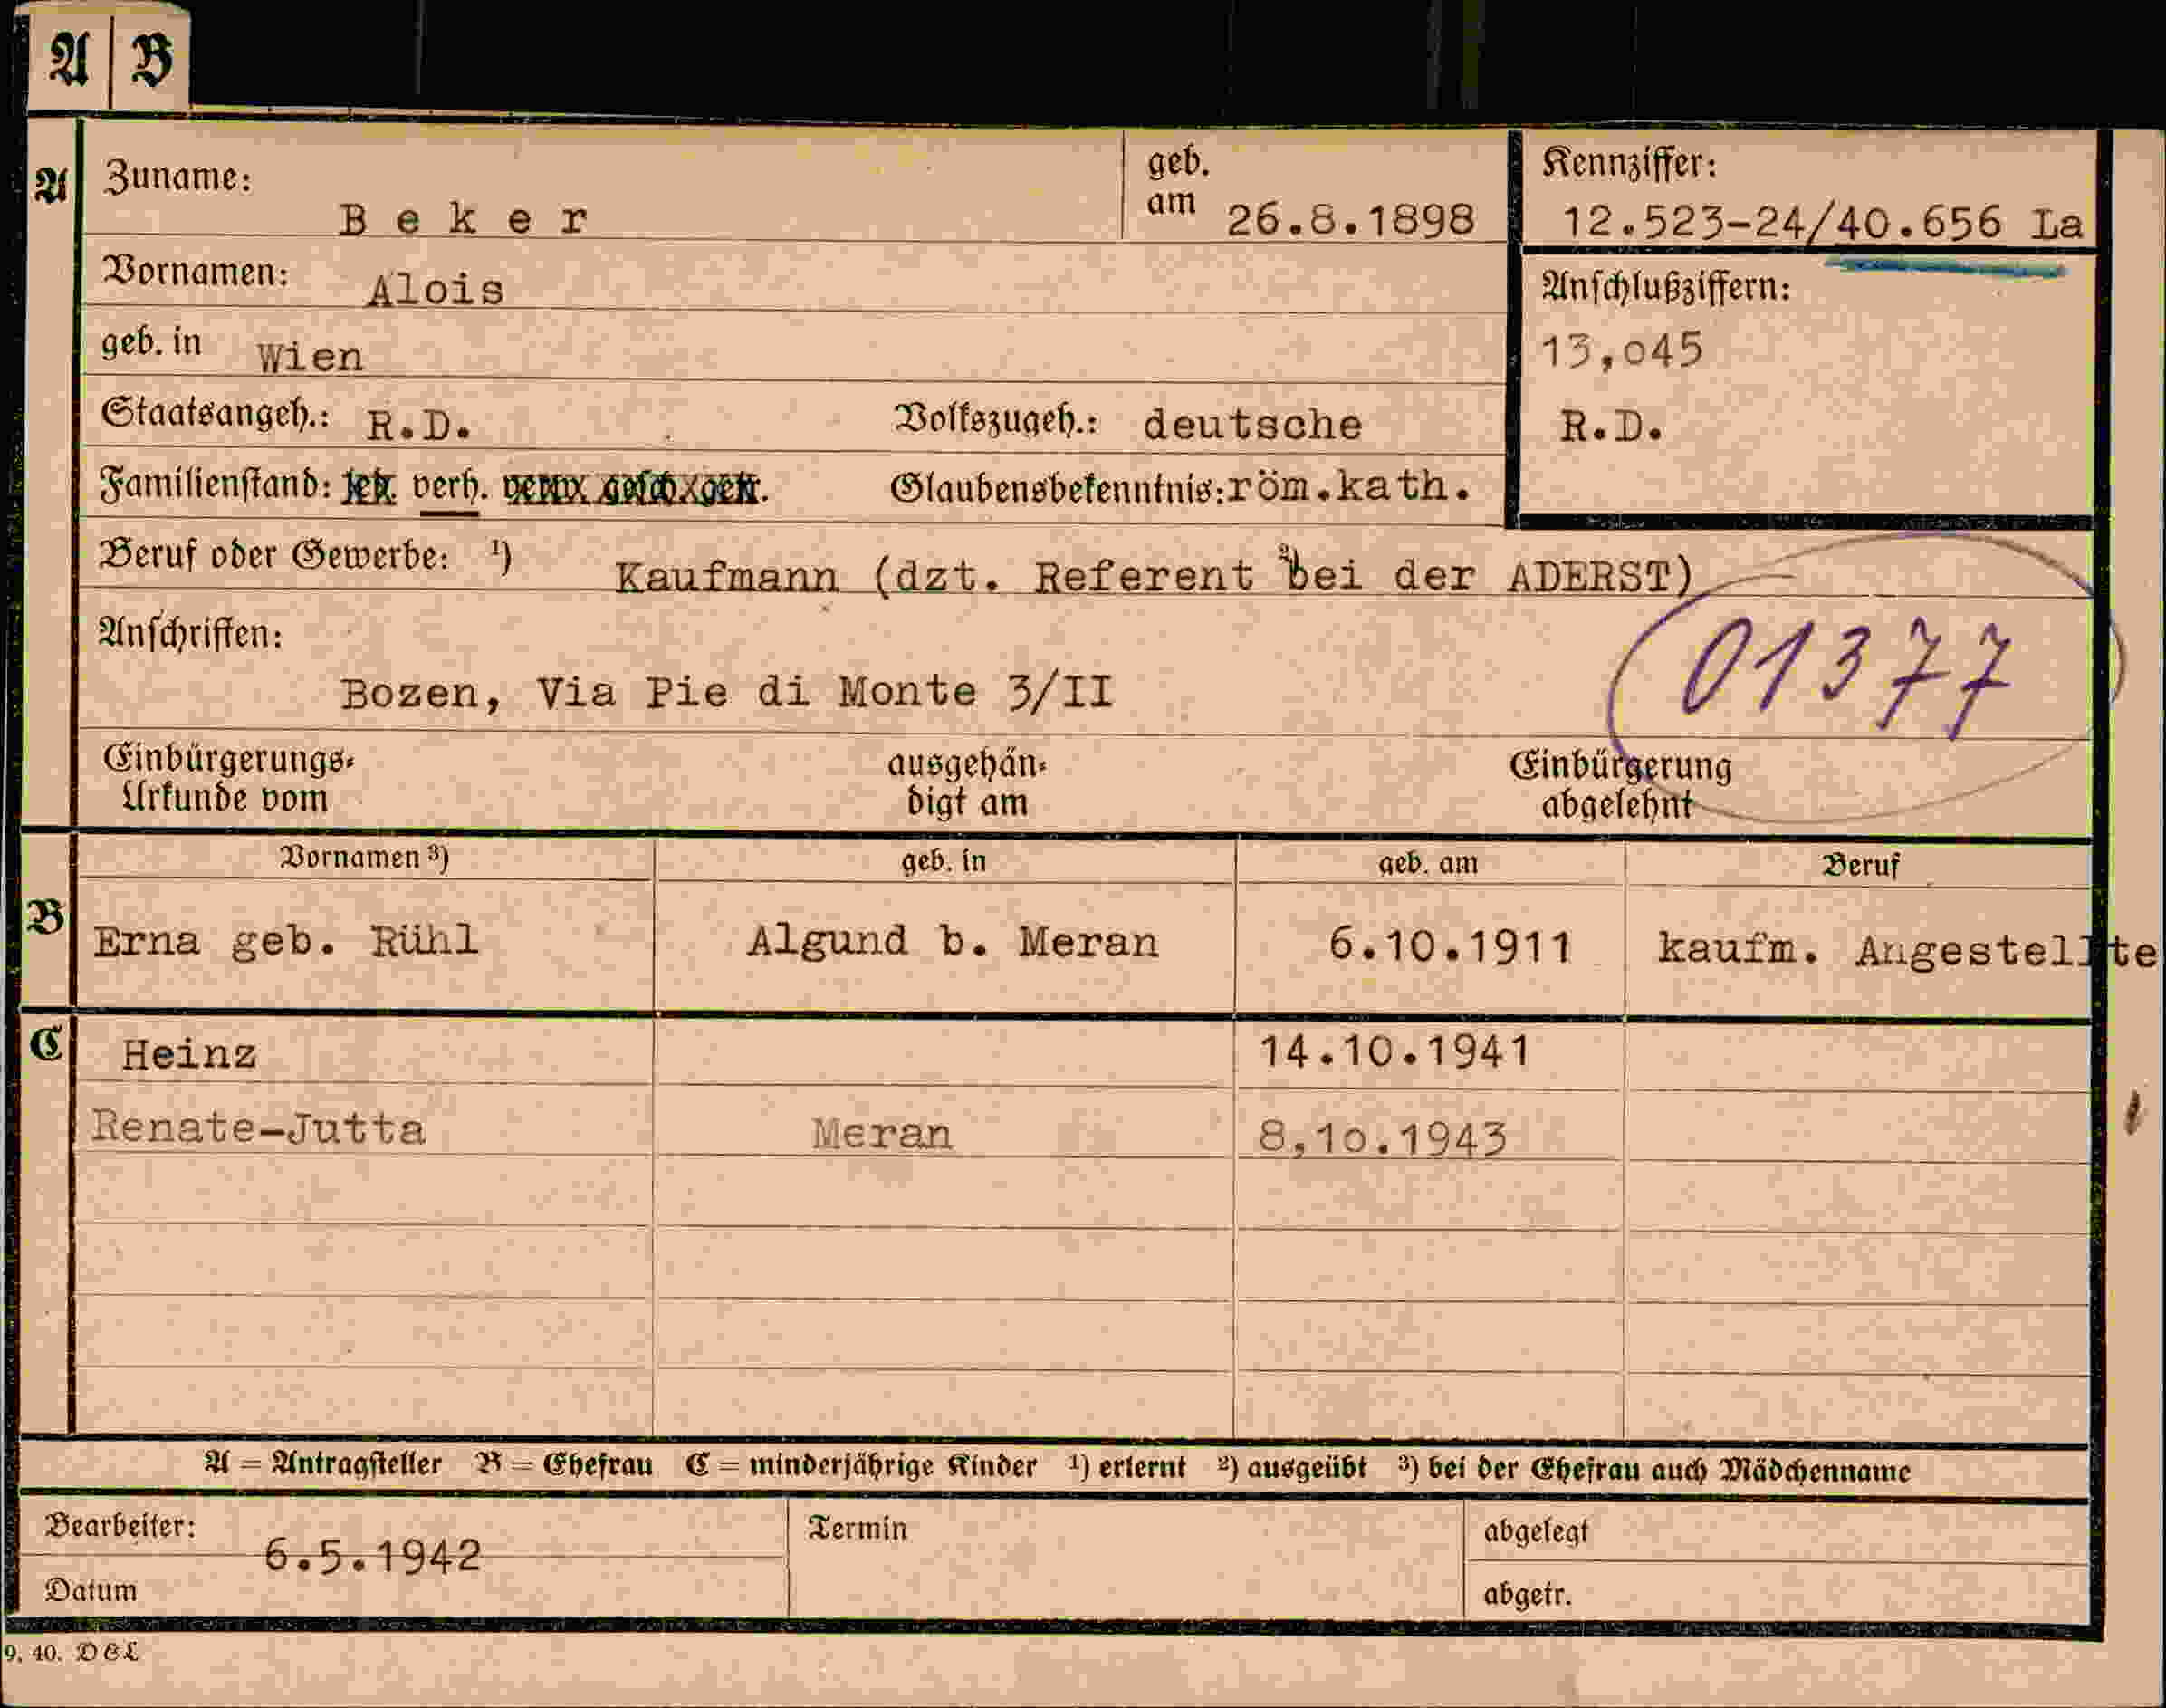 A B
A Zuname: Beker geb. am 26.8.1898 Kennziffer: 12.523-24/40.656 La
Vornamen: Alois Anschlußziffern:
geb. in Wien 13,o45
Staatsangeh.: R.D. Volkszugeh.: deutsche R.D.
Familienstand: led. verh. verw. gesch. getr. Glaubensbekenntnis: röm.kath.
Beruf oder Gewerbe: ¹) Kaufmann (dzt. Referent ²) bei der ADERST)
Anschriften: 01377
Bozen, Via Pie di Monte 3/II
Einbürgerungs- ausgehän- Einbürgerung
Urkunde vom digt am abgelehnt
Vornamen ³) geb. in geb. am Beruf
B Erna geb. Rühl Algund b. Meran 6.10.1911 kaufm. Angestellte
C Heinz 14.10.1941
Renate-Jutta Meran 8,1o.1943
A = Antragsteller B = Ehefrau C = minderjährige Kinder ¹) erlernt ²) ausgeübt ³) bei der Ehefrau auch Mädchenname
Bearbeiter: Termin abgelegt
6.5.1942
Datum abgetr.
9. 40. DEL